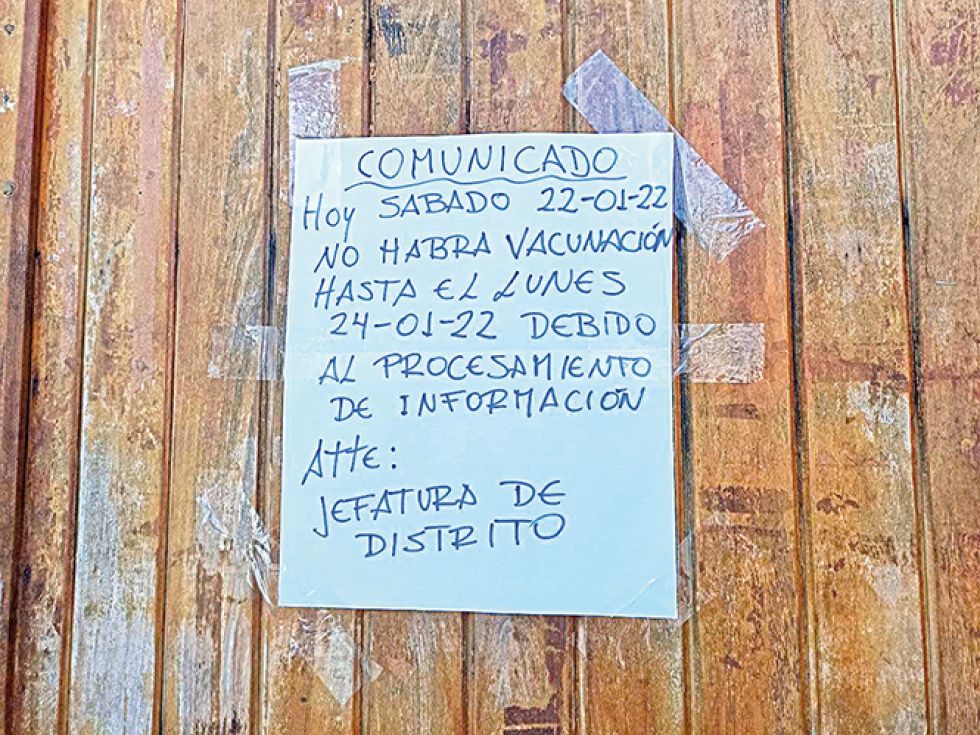 COMUNICADO
Hoy SABADO 22-01-22
NO HABRA VACUNACIÓN
HASTA EL LUNES
24-01-22 DEBIDO
AL PROCESAMIENTO
DE INFORMACIÓN
Atte:
JEFATURA DE
DISTRITO